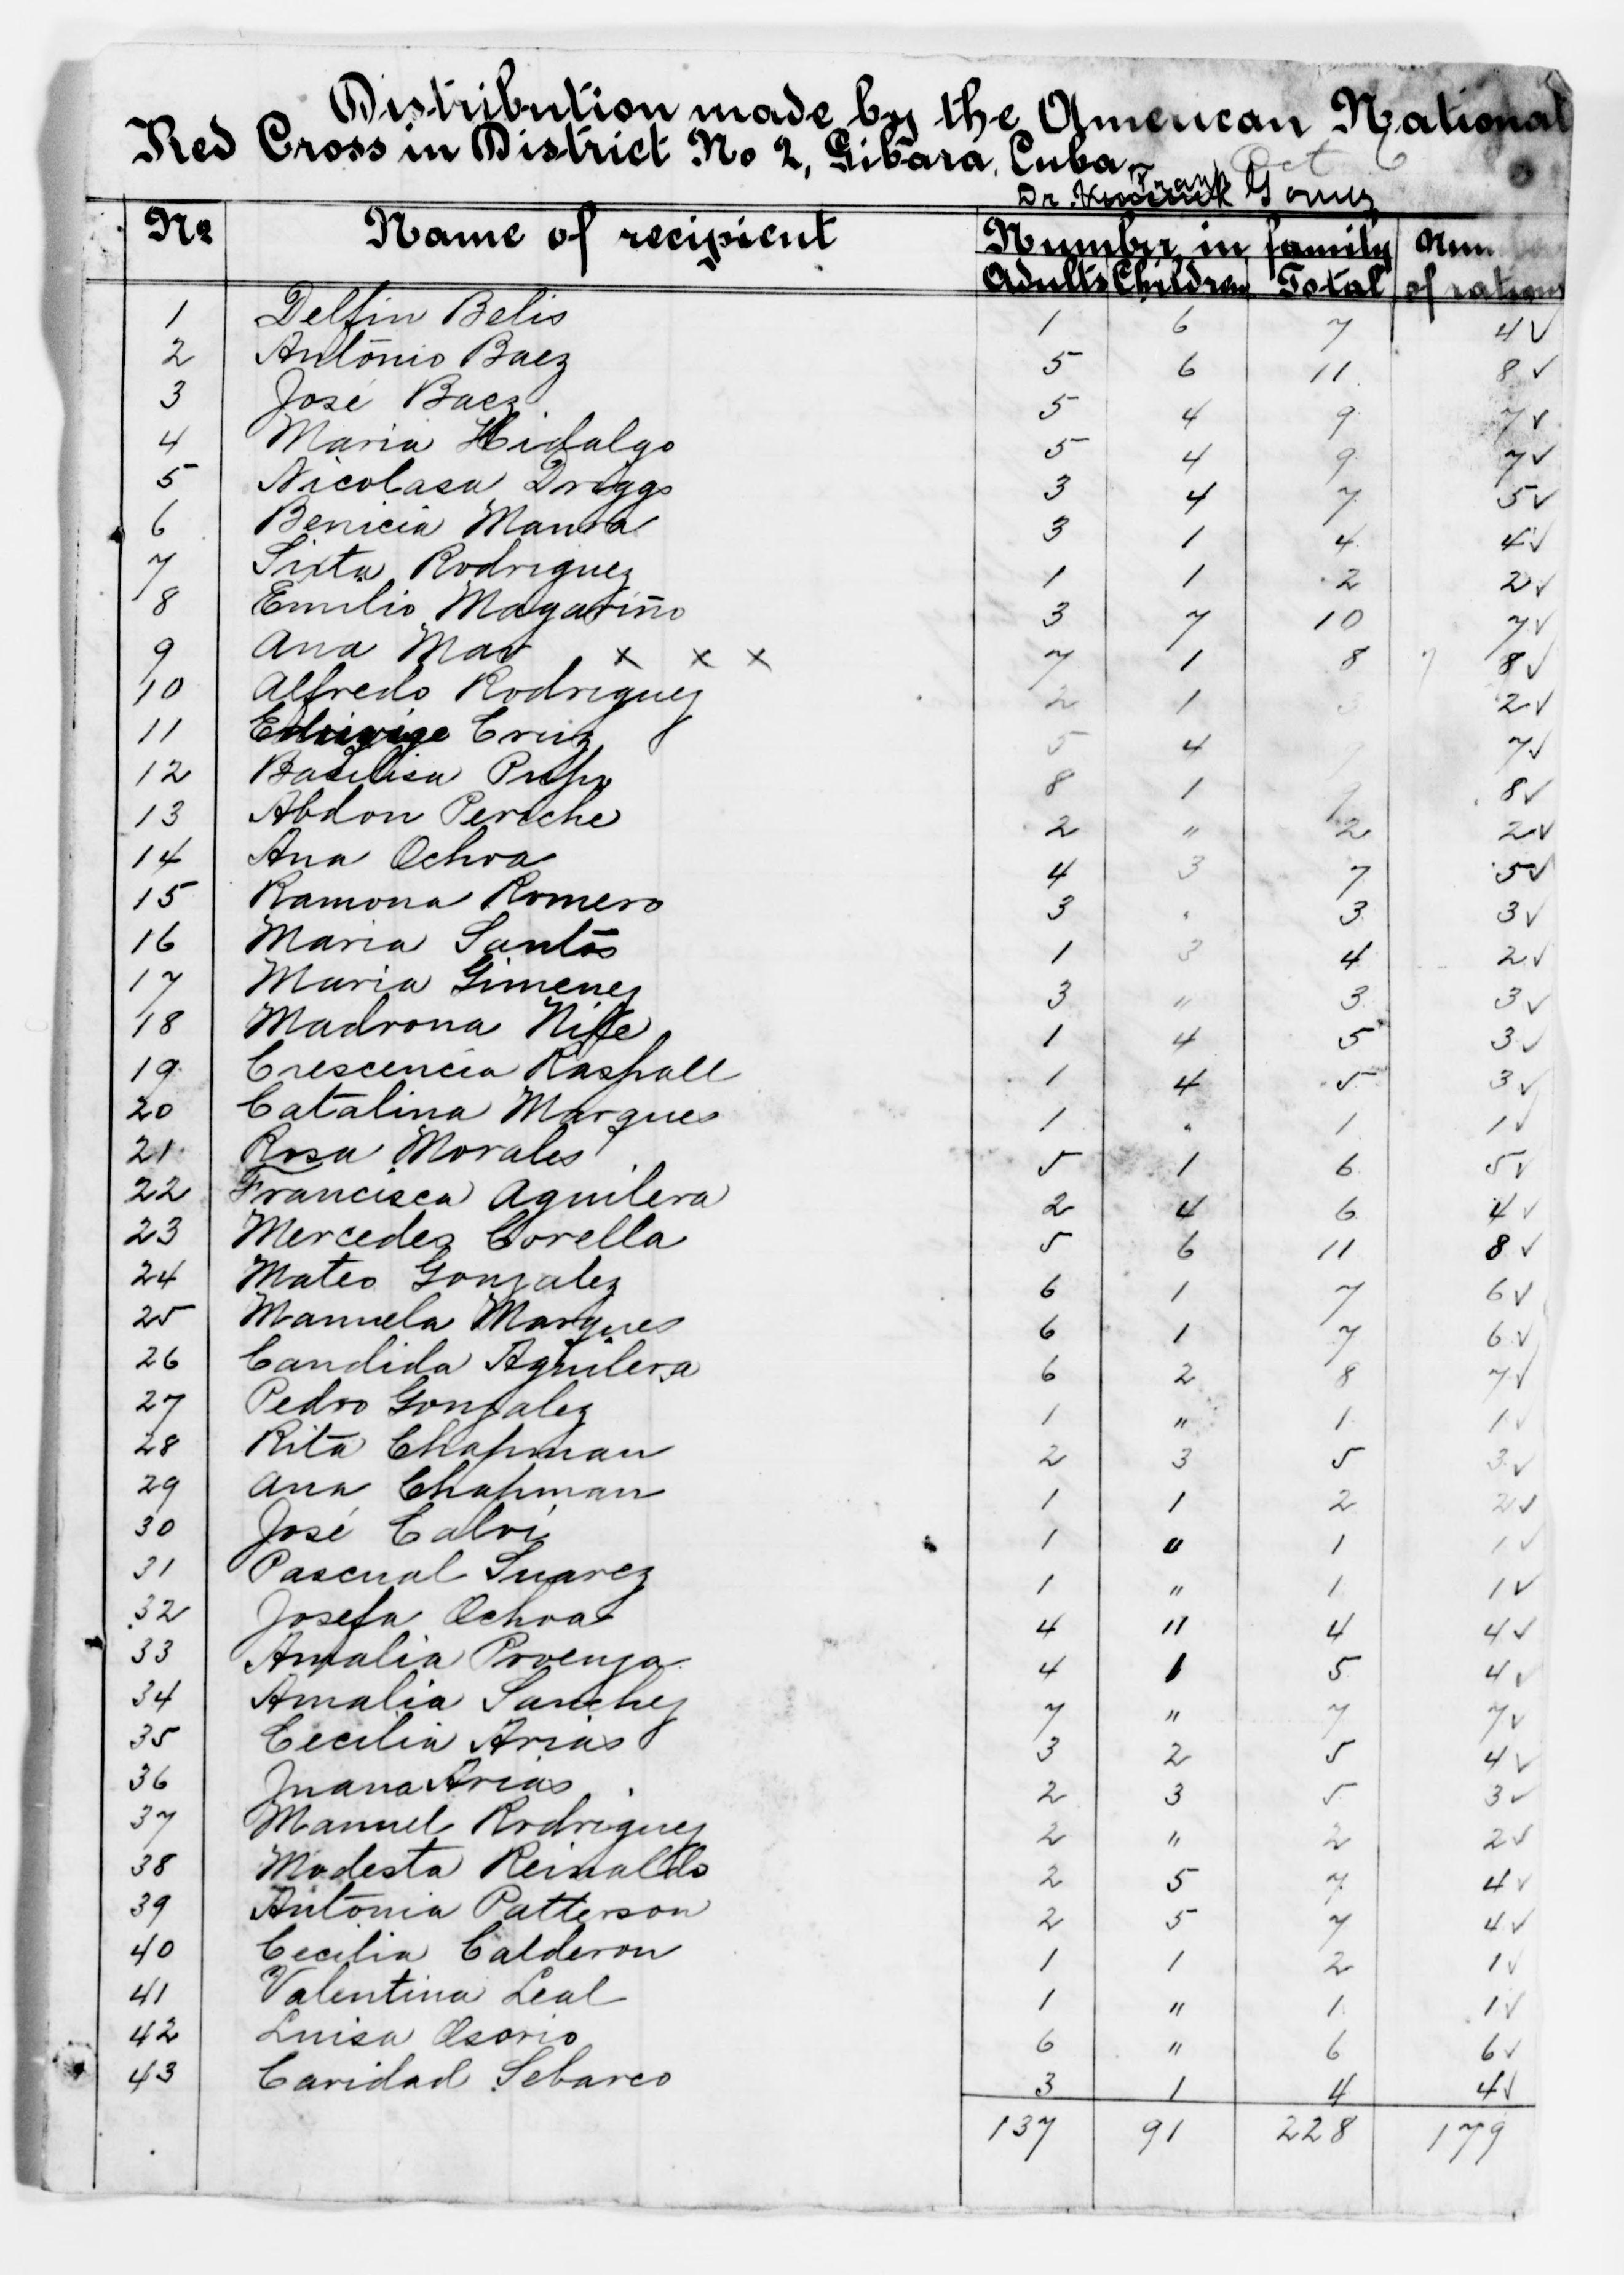 Distribution made by the American National
Red Cross in District No 2, Gibara, Cuba. Oct
Dr. Frank Gomez
No Name of recipient Number in family Num
Adults Children Total of rations
1 Delfin Belis 1 6 7 4 ✓
2 Antonio Baez 5 6 11 8 ✓
3 José Baez 5 4 9 7 ✓
4 Maria Hidalgo 5 4 9 7 ✓
5 Nicolasa Driggs 3 4 7 5 ✓
6 Benicia 3 1 4 4 ✓
7 Sixta Rodriguez 1 1 2 2 ✓
8 Emilio Magariño 3 7 10 7 ✓
9 Ana Mar x x x 7 1 8 8 ✓
10 Alfredo Rodriguez 2 1 3 2 ✓
11 Cruz 5 4 9 7 ✓
12 Basilisa Pupo 8 1 9 8 ✓
13 Abdon Periche 2 " 2 2 ✓
14 Ana Ochoa 4 3 7 5 ✓
15 Ramona Romero 3 " 3 3 ✓
16 Maria Santos 1 3 4 2 ✓
17 Maria Gimenez 3 " 3 3 ✓
18 Madrona 1 4 5 3 ✓
19 Crescencia Raspall 1 4 5 3 ✓
20 Catalina Marques 1 " 1 1 ✓
21 Rosa Morales 5 1 6 5 ✓
22 Francisca Aguilera 2 4 6 4 ✓
23 Mercedes Corella 5 6 11 8 ✓
24 Mateo Gonzalez 6 1 7 6 ✓
25 Manuela Marques 6 1 7 6 ✓
26 Candida Aguilera 6 2 8 7 ✓
27 Pedro Gonzalez 1 " 1 1 ✓
28 Rita Chapman 2 3 5 3 ✓
29 Ana Chapman 1 1 2 2 ✓
30 José Calvi 1 " 1 1 ✓
31 Pascual Suarez 1 " 1 1 ✓
32 Josefa Ochoa 4 " 4 4 ✓
33 Amalia Proenza 4 1 5 4 ✓
34 Amalia Sanchez 7 " 7 7 ✓
35 Cecilia Arias 3 2 5 4 ✓
36 Juana Arias 2 3 5 3 ✓
37 Manuel Rodriguez 2 " 2 2 ✓
38 Modesta Reinaldo 2 5 7 4 ✓
39 Antonia Patterson 2 5 7 4 ✓
40 Cecilia Calderon 1 1 2 1 ✓
41 Valentina Leal 1 " 1 1 ✓
42 Luisa Osorio 6 " 6 6 ✓
43 Caridad Sebarco 3 1 4 4 ✓
137 91 228 179